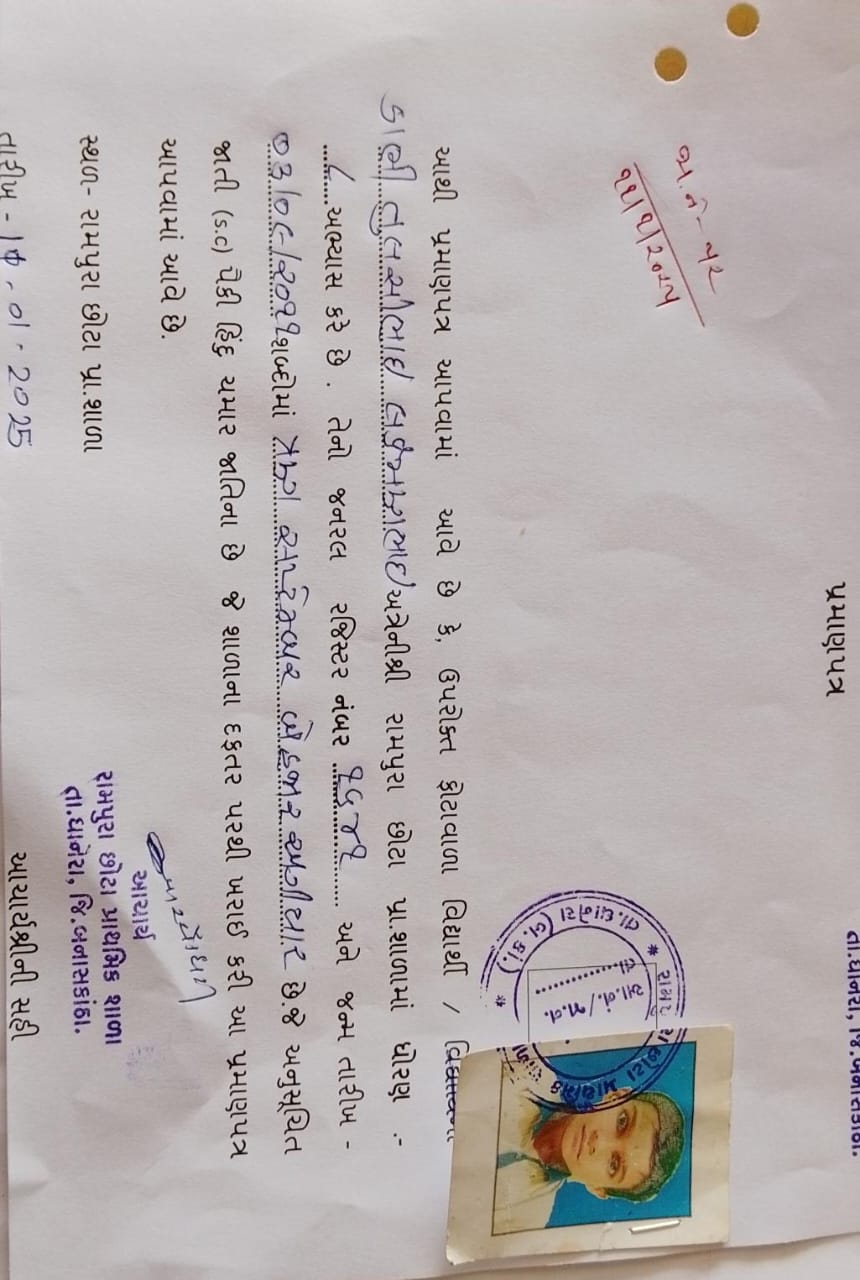 તા.ધાનેરા, જિ.બનાસકાંઠા.
પ્રમાણપત્ર
જા.નં - ૫૨
૧૫/૧/૨૦૨૫
આથી પ્રમાણપત્ર આપવામાં આવે છે કે, ઉપરોક્ત ફોટાવાળા વિદ્યાર્થી /
ડાભી તુલસીભાઇ લક્ષ્મણભાઇ અત્રેનીશ્રી રામપુરા છોટા પ્રા.શાળામાં ધોરણ :-
૮ અભ્યાસ કરે છે . તેનો જનરલ રજિસ્ટર નંબર અને જન્મ તારીખ -
૦૩/૦૮/૨૦૧૧ શબ્દોમાં ત્રણ બે હજાર અગીયાર છે.જે અનુસૂચિત
જાતી (s.c) પૈકી હિંદુ ચમાર જાતિના છે જે શાળાના દફતર પરથી ખરાઈ કરી આ પ્રમાણપત્ર
આપવામાં આવે છે.
સ્થળ- રામપુરા છોટા પ્રા.શાળા
આચાર્ય
રામપુરા છોટા પ્રાથમિક શાળા
તા.ધાનેરા, જિ.બનાસકાંઠા.
તારીખ - 15.01.2025
આચાર્યશ્રીની સહી